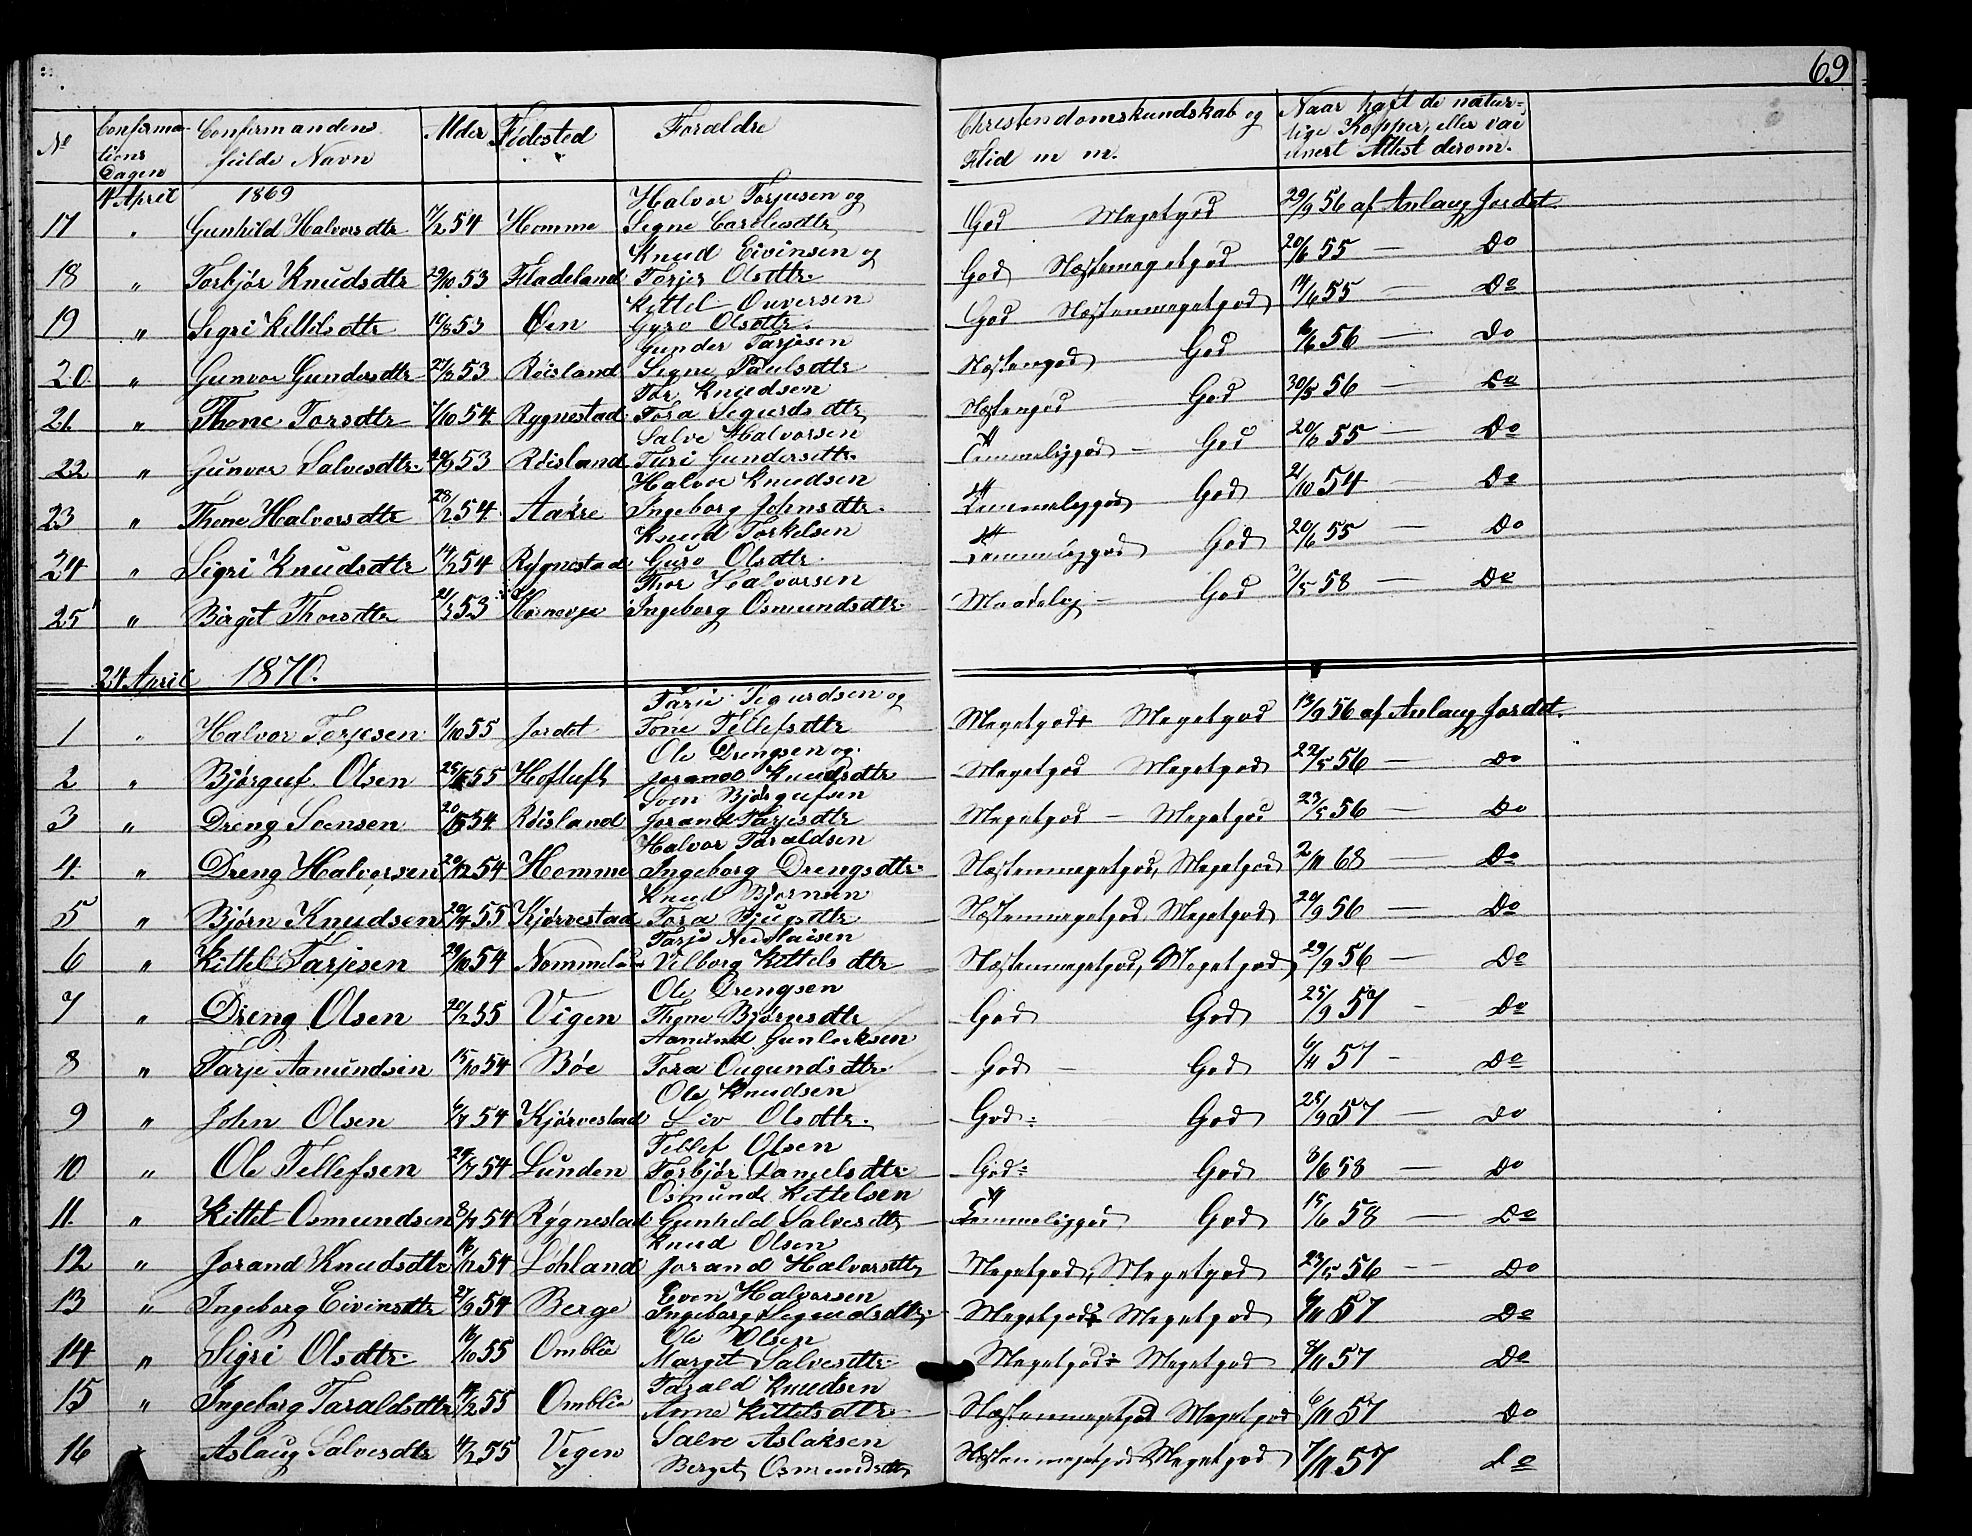 69
No Confirmations Dagen Confirmandens fulde Navn Alder Fødested Forældre Christendomskundskab og Flid m m. Naar haft de naturlige Kopper, eller vaccineret Attest derom.
4 April 1869
17 " Gunhild Halvorsdtr 54 Homme Halvor Torjusen og Signe God Megetgod 29/9 56 af Anlaug Jordet.
18 " Torbjør Knudsdtr 29/10 53 Fladeland Knud Eivinsen og Torjer Olsdtr. God Næstenmegetgod 20/6 55 — Do
19 " Sigri Kittilsdtr 53 Øen Kittel Ouversen Gyro Olsdtr. God Næstenmegetgod 14/6 55 — Do
20. " Gunvor Gundersdtr 53 Røisland Gunder Tarjesen Signe Paulsdtr Næstengod God 6/6 56 — Do
21 " Thone Torsdtr 7/10 54 Rygnestad Tor Knudsen Tora Sigurdsdtr Næstengod — God 30/5 56 — Do
22 " Gunvor Salvesdtr. 53 Røisland Salve Halvorsen Turi Gundersdtr. Temmeliggod — God 20/6 55 — Do
23 " Thone Halvorsdtr 28/2 54 Halvor Knudsen Ingeborg Johnsdtr. Temmeliggod God 21/10 54 — Do
24 " Sigri Knudsdtr 14/2 54 Rygnestad Knud Torkelsen Guro Olsdtr. Temmeliggod God 20/6 55 — Do
25 " Birgit Thorsdtr 21/3 53 Thor Halvorsen Ingeborg Osmundsdtr. Maadelig — God 3/5 58 — Do
24 April 1870.
1 " Halvor Torjesen 1/10 55 Jordet Tarje Sigurdsen og Tone Tellefsdtr Megetgod Megetgod 13/9 56 af Anlaug Jordet.
2 " Bjørguf Olsen 55 Hoftuft Ole Drengsen og Jorand Knudsdtr Megetgod Megetgod 22/5 56 — Do
3 " Dreng Svensen 54 Røisland Sven Bjørgufsen Jorand Tarjesdtr Megetgod — Megetgod 23/5 56 — Do
4. " Dreng Halvorsen 20/12 54 Homme Halvor Taraldsen Ingeborg Drengsdtr. Næstenmegetgod, Megetgod 2/11 68 — Do
5 " Bjørn Knudsen 55 Kjørvestad Knud Bjørnsen Tora Næstenmegetgod Megetgod 20/9 56 — Do
6 " Kittel Tarjesen 29/10 54 Tarje Nicolaisen Vilborg Kittelsdtr Næstenmegetgod, Megetgod 29/9 56 — Do
7 " Dreng Olsen 20/2 55 Vigen Ole Drengsen Thone Bjørnsdtr God God 25/9 57 — Do
8 " Tarje Aamundsen 15/10 54 Bøe Aamund Gunleiksen Tora Ougundsdtr. God — God 6/11 57 — Do
9 " John Olsen 6/7 54 Kjørvestad Ole Knudsen Liv Olsdtr. God God 25/9 57 — Do
10 " Ole Tellefsen 29/7 54 Lunden Tellef Olsen Torbjør Danielsdtr. God God 8/6 58 — Do
11. " Kittel Osmundsen 54 Rygnestad Osmund Kittelsen Gunhild Salvesdtr Temmeliggod God 15/6 58 — Do
12 " Jorand Knudsdtr 16/12 54 Løhland Knud Olsen Jorand Halvorsdtr Megetgod, Megetgod 23/5 56 — Do
13 " Ingeborg Eivinsdtr 27/9 54 Berge Even Halvorsen Ingeborg Sigurdsdtr. Megetgod Megetgod 6/11 57 Do
14 " Sigri Olsdtr. 16/10 55 Omblie Ole Olsen Margit Salvesdtr. Megetgod Megetgod 8/11 57 Do
15 " Ingeborg Taraldsdtr 55 Omblie Tarald Knudsen Anne Kittelsdtr Næstenmegetgod Megetgod 6/11 57 Do
16 " Aslaug Salvesdtr 4/2 55 Vigen Salve Aslaksen Berget Osmundsdtr Næstenmegetgod, Megetgod 7/11 57 Do